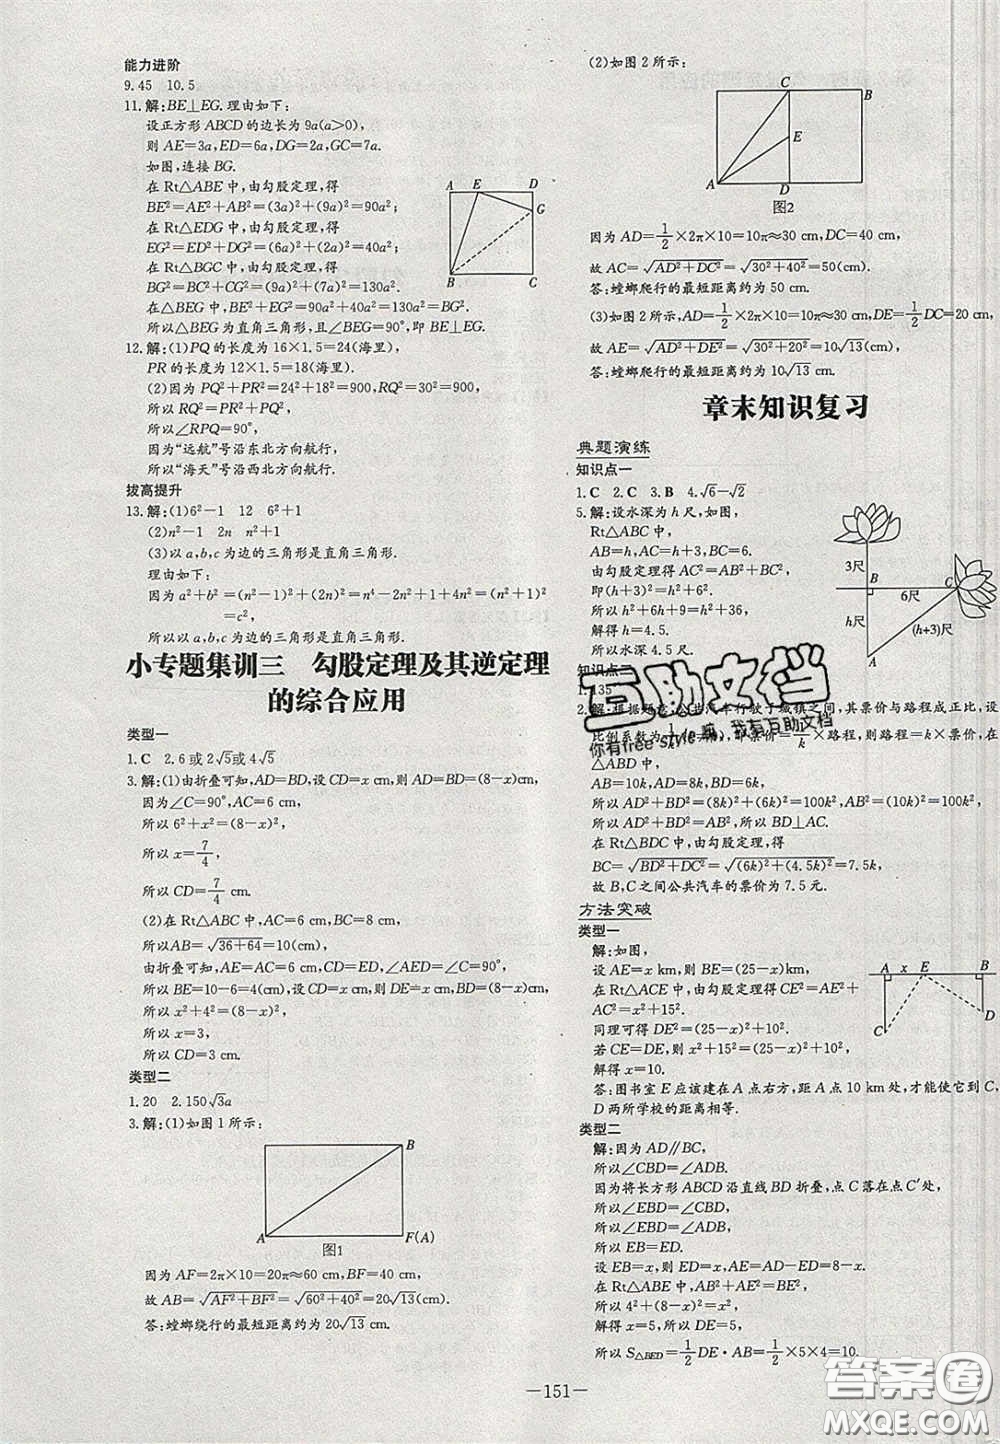 能力进阶
9.45　10.5
11.解:BE⊥EG.理由如下:
设正方形ABCD的边长为9a(a>0),
则AE=3a,ED=6a,DG=2a,GC=7a.
如图,连接BG.
在Rt△ABE中,由勾股定理,得
BE²=AE²+AB²=(3a)²+(9a)²=90a²;
在Rt△EDG中,由勾股定理,得
EG²=ED²+DG²=(6a)²+(2a)²=40a²;
在Rt△BGC中,由勾股定理,得
BG²=BC²+CG²=(9a)²+(7a)²=130a².
在△BEG中,BE²+EG²=90a²+40a²=130a²=BG².
所以△BEG为直角三角形,且∠BEG=90°,即BE⊥EG.
A E D
G
B C
12.解:(1)PQ的长度为16×1.5=24(海里),
PR的长度为12×1.5=18(海里).
(2)因为PQ²+PR²=24²+18²=900,RQ²=30²=900,
所以RQ²=PR²+PQ²,
所以∠RPQ=90°,
因为“远航”号沿东北方向航行,
所以“海天”号沿西北方向航行.
拔高提升
13.解:(1)6²-1　12　6²+1
(2)n²-1　2n　n²+1
(3)以a,b,c为边的三角形是直角三角形.
理由如下:
因为a²+b²=(n²-1)²+(2n)²=n⁴-2n²+1+4n²=(n²+1)²
=c²,
所以以a,b,c为边的三角形是直角三角形.
小专题集训三　勾股定理及其逆定理
的综合应用
类型一
1.C　2.6或2√5或4√5
3.解:(1)由折叠可知,AD=BD,设CD=x cm,则AD=BD=(8-x)cm,
因为∠C=90°,AC=6 cm,
所以6²+x²=(8-x)²,
所以x=7/4,
所以CD=7/4 cm.
(2)在Rt△ABC中,AC=6 cm,BC=8 cm,
所以AB=√36+64=10(cm),
由折叠可知,AE=AC=6 cm,∠AED=∠C=90°,
所以BE=10-6=4(cm),设CD=x cm,则DE=x cm,BD=(8-x)cm,
所以x²+4²=(8-x)²,
所以CD=3 cm.
类型二
1.20　2.150√3a
3.解:(1)如图1所示:
B
A F(A)
图1
因为AF=2π×10=20π≈60 cm,BF=40 cm,
故AB=√AF²+BF²=√60²+40²=20√13(cm).
答:螳螂绕行的最短距离约为20√13 cm.
(2)如图2所示:
C B
E
A D
图2
因为AD=1/2×2π×10=10π≈30 cm,DC=40 cm,
故AC=√AD²+DC²=√30²+40²=50(cm).
答:螳螂爬行的最短距离约为50 cm.
(3)如图2所示,AD=1/2×2π×10≈30 cm,DE=1/2DC=20 cm,
故AE=√AD²+DE²=√30²+20²=10√13(cm).
答:螳螂爬行的最短距离约为10√13 cm.
章末知识复习
典题演练
知识点一
1.C　2.C　3.B　4.√6-√2
5.解:设水深为h尺,如图,
Rt△ABC中,
AB=h,AC=h+3,BC=6.
由勾股定理得AC²=AB²+BC²,
即(h+3)²=h²+6².
所以h²+6h+9=h²+36,
解得h=4.5.
所以水深4.5尺.
3尺
B C
6尺
h尺
(h+3)尺
A
知识点二
1.135°
2.解:根据题意,公共汽车行驶于城镇之间,其票价与路程成正比,设
比例系数为1/k,即票价=1/k×路程,则路程=k×票价,在
△ABD中,
AB=10k,AD=8k,BD=6k,
所以AD²+BD²=(8k)²+(6k)²=100k²,AB²=(10k)²=100k²,
所以AD²+BD²=AB²,所以BD⊥AC.
在Rt△BDC中,由勾股定理,得
BC=√BD²+DC²=√(6k)²+(4.5k)²=7.5k,
故B,C之间公共汽车的票价为7.5元.
方法突破
类型一
解:如图,
设AE=x km,则BE=(25-x)km.
在Rt△ACE中,由勾股定理得CE²=AE²+
AC²=x²+15².
同理可得DE²=(25-x)²+10².
若CE=DE,则x²+15²=(25-x)²+10².
解得x=10.
答:图书室E应该建在A点右方,距A点10 km处,才能使它到C,
D两所学校的距离相等.
A x E B
C D
类型二
解:因为AD∥BC,
所以∠CBD=∠ADB.
因为将长方形ABCD沿直线BD折叠,点C落在点C′处,
所以∠EBD=∠CBD,
所以∠EBD=∠ADB,
所以EB=ED.
设EB=x,则ED=x,AE=AD-ED=8-x.
在Rt△ABE中,AB²+AE²=BE²,
所以4²+(8-x)²=x²,
解得x=5,所以DE=5.
所以S△BED=1/2DE·AB=1/2×5×4=10.
—151—
互助文档
你有free style吗,我有互助文档
答案圈
MXQE.COM